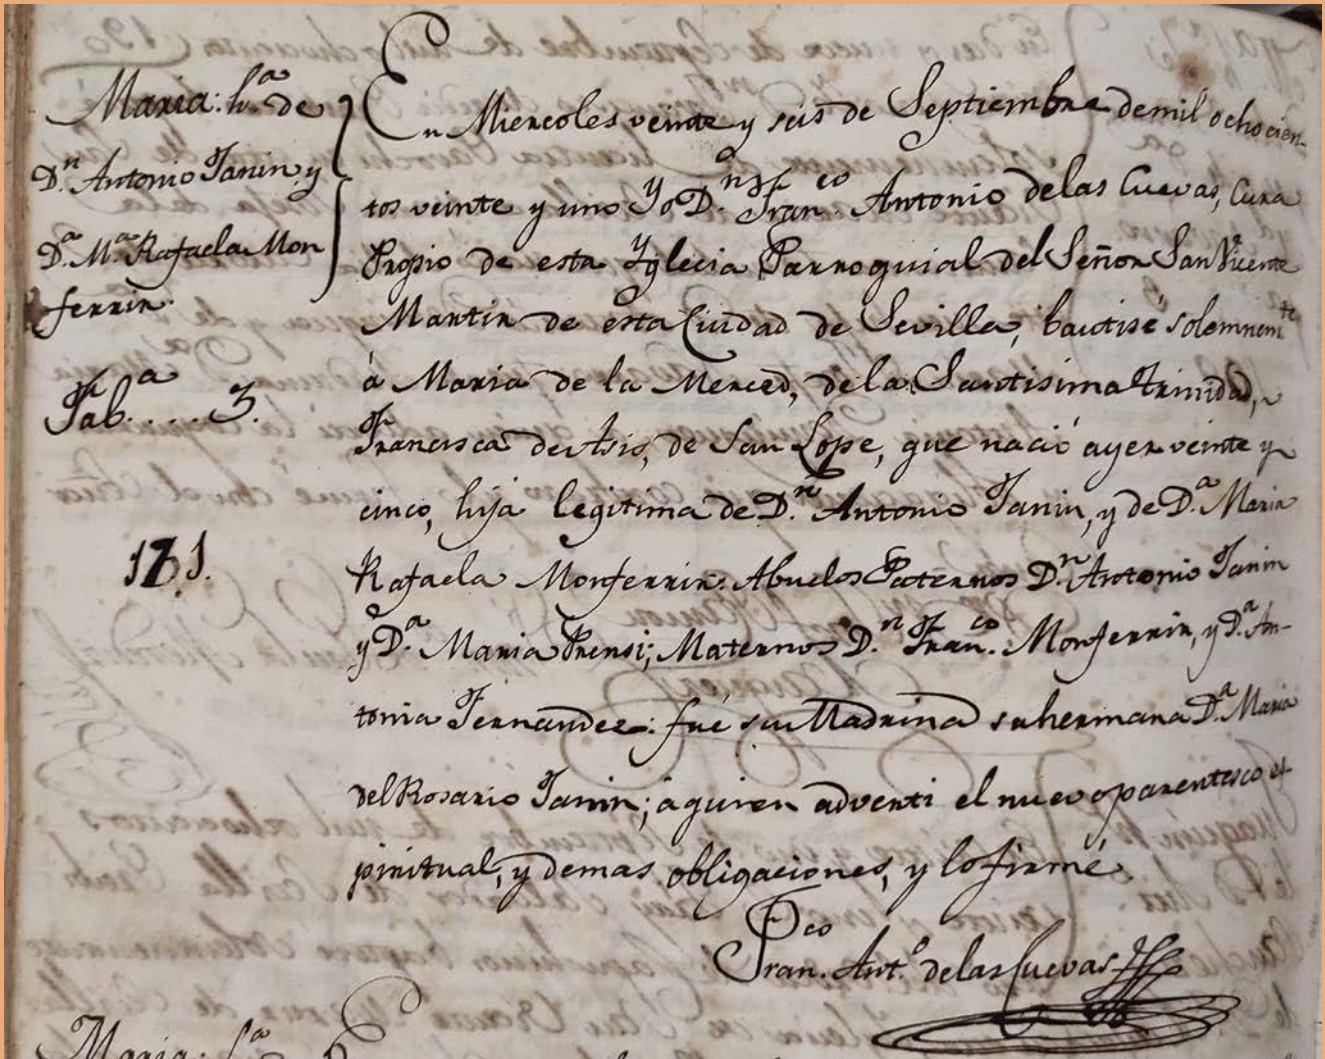 Maria: h.ª de
D.n Antonio Janin y
D.ª M.ª Rafaela Mon
ferrin.
Fab.ª . . . . 3.
131.
En Miercoles veinte y seis de Septiembre de mil ochocien-
tos veinte y uno Yo D.n Fran.co Antonio de las Cuevas, Cura
Propio de esta Yglecia Parroquial del Señor San Vicente
Martir de esta Ciudad de Sevilla, bautisé solemnem.te
á Maria de la Merced, de la Santisima Trinidad,
Francisca de Asis, de San Lope, que nació ayer veinte y
cinco, hija legitima de D.n Antonio Janin, y de D.ª Maria
Rafaela Monferrin: Abuelos Paternos D.n Antonio Janin
y D.ª Maria Prensi; Maternos D.n Fran.co Monferrin, y D.ª An-
tonia Fernandez: fué su Madrina su hermana D.ª Maria
del Rosario Janin; á quien adverti el nuevo parentesco es-
piritual, y demas obligaciones, y lo firmé.
Fran.co Ant.º de las Cuevas
Maria: h.ª